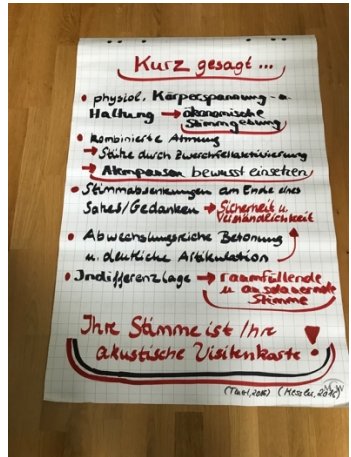 Kurz gesagt ...
• physiol. Körperspannung u.
Haltung → ökonomische
Stimmgebung
• kombinierte Atmung
→ Stütze durch Zwerchfellaktivierung
→ Atempausen bewusst einsetzen
• Stimmabsenkungen am Ende eines
Satzes/Gedanken → Sicherheit u.
Verständlichkeit
• Abwechslungsreiche Betonung
u. deutliche Artikulation
• Indifferenzlage → raumfüllende
u. ausdauernde
Stimme
Ihre Stimme ist Ihre
akustische Visitenkarte !